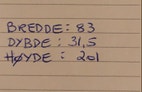 BREDDE: 83
DYBDE: 31,5
HØYDE: 201